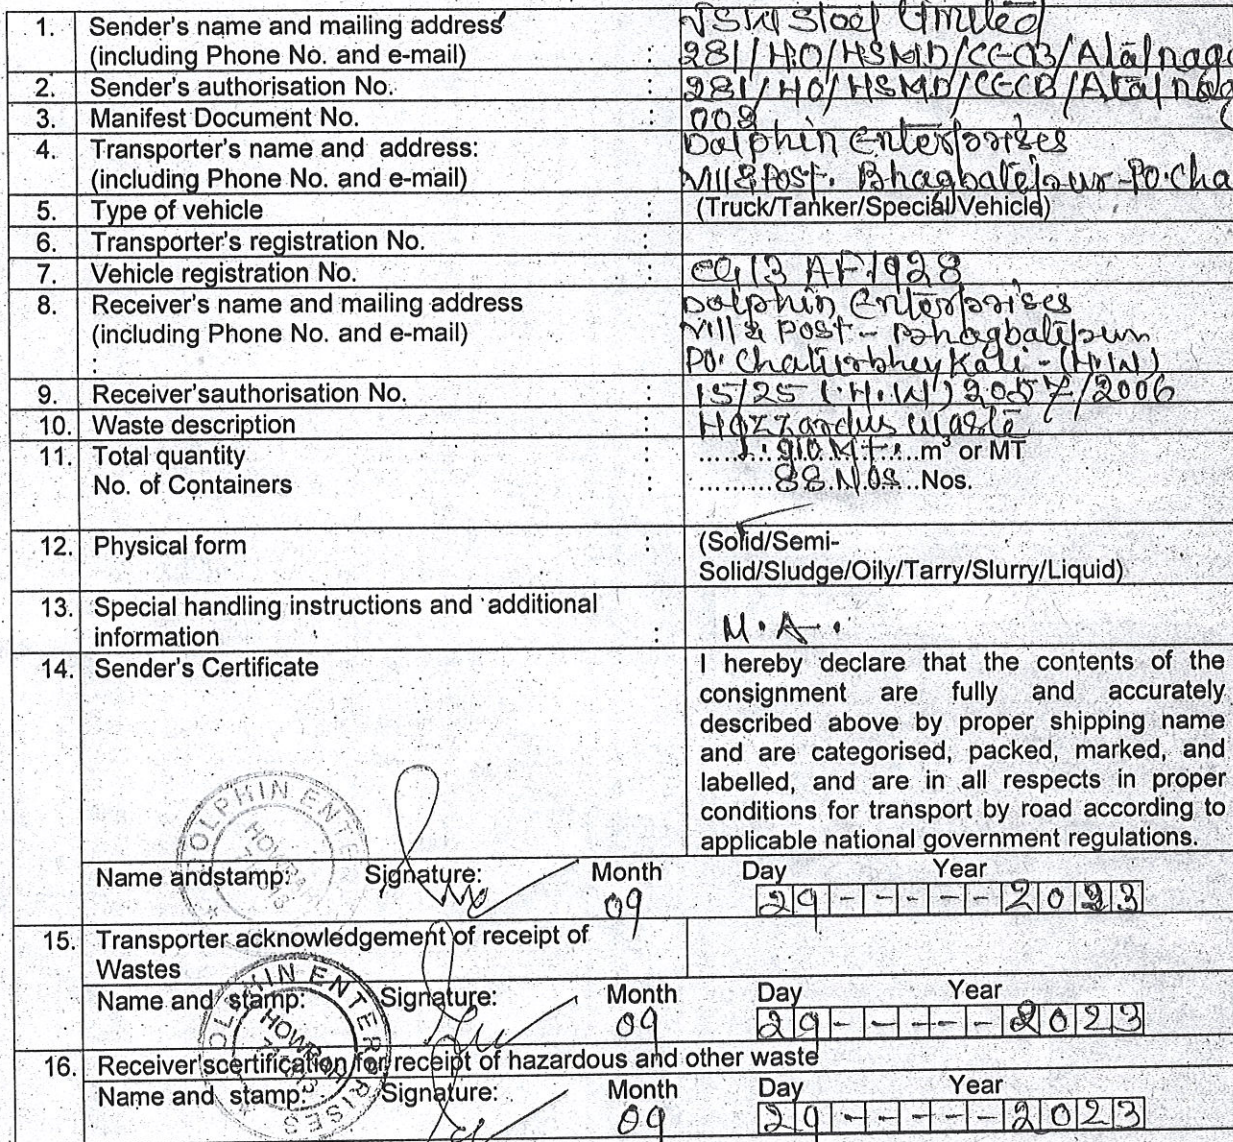 1. Sender's name and mailing address JSW Steel Limited
(including Phone No. and e-mail) : 281/HO/HSMD/CECB/Atalnaga
2. Sender's authorisation No. 281/HO/HSMD/CECB/Atalnag
3. Manifest Document No. : 008
4. Transporter's name and address: Dolphin Enterprises
(including Phone No. and e-mail) Vill & Post. Bhagbatipur-PO.Cha
5. Type of vehicle : (Truck/Tanker/Special Vehicle)
6. Transporter's registration No. :
7. Vehicle registration No. : CG13 AF1928
8. Receiver's name and mailing address Dolphin Enterprises
(including Phone No. and e-mail) Vill & Post - Bhagbatipur
: PO. Chaturbhey Kali - (H.W)
9. Receiver'sauthorisation No. : 15/25 (H.W) 2057/2006
10. Waste description : Hazzardus Waste
11. Total quantity : 910 MT m³ or MT
No. of Containers : 88 NOS Nos.
12. Physical form : (Solid/Semi-
Solid/Sludge/Oily/Tarry/Slurry/Liquid)
13. Special handling instructions and additional
information : N.A.
14. Sender's Certificate I hereby declare that the contents of the
consignment are fully and accurately
described above by proper shipping name
and are categorised, packed, marked, and
labelled, and are in all respects in proper
conditions for transport by road according to
applicable national government regulations.
DOLPHIN ENTE
HOWRAH
Name andstamp: Signature: Month Day Year
09 29 - - - - - 2023
15. Transporter acknowledgement of receipt of
Wastes
DOLPHIN ENTERPRISES
HOWRAH
Name and stamp: Signature: Month Day Year
09 29 - - - - - 2023
16. Receiver'scertification for receipt of hazardous and other waste
Name and stamp: Signature: Month Day Year
09 29 - - - - - 2023